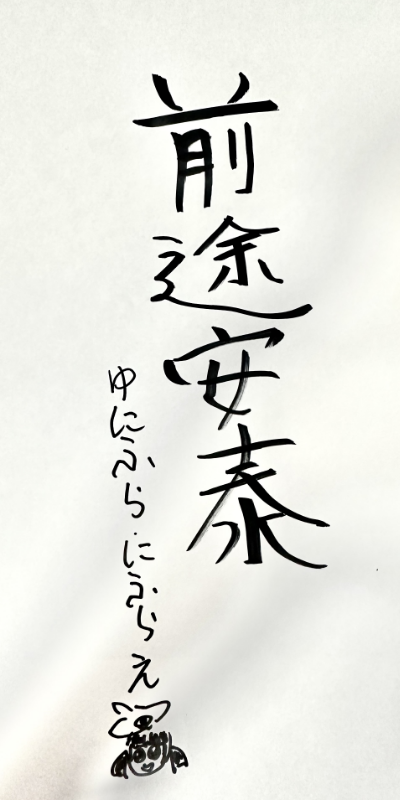 前途安泰
ゆにふら・にふらえ